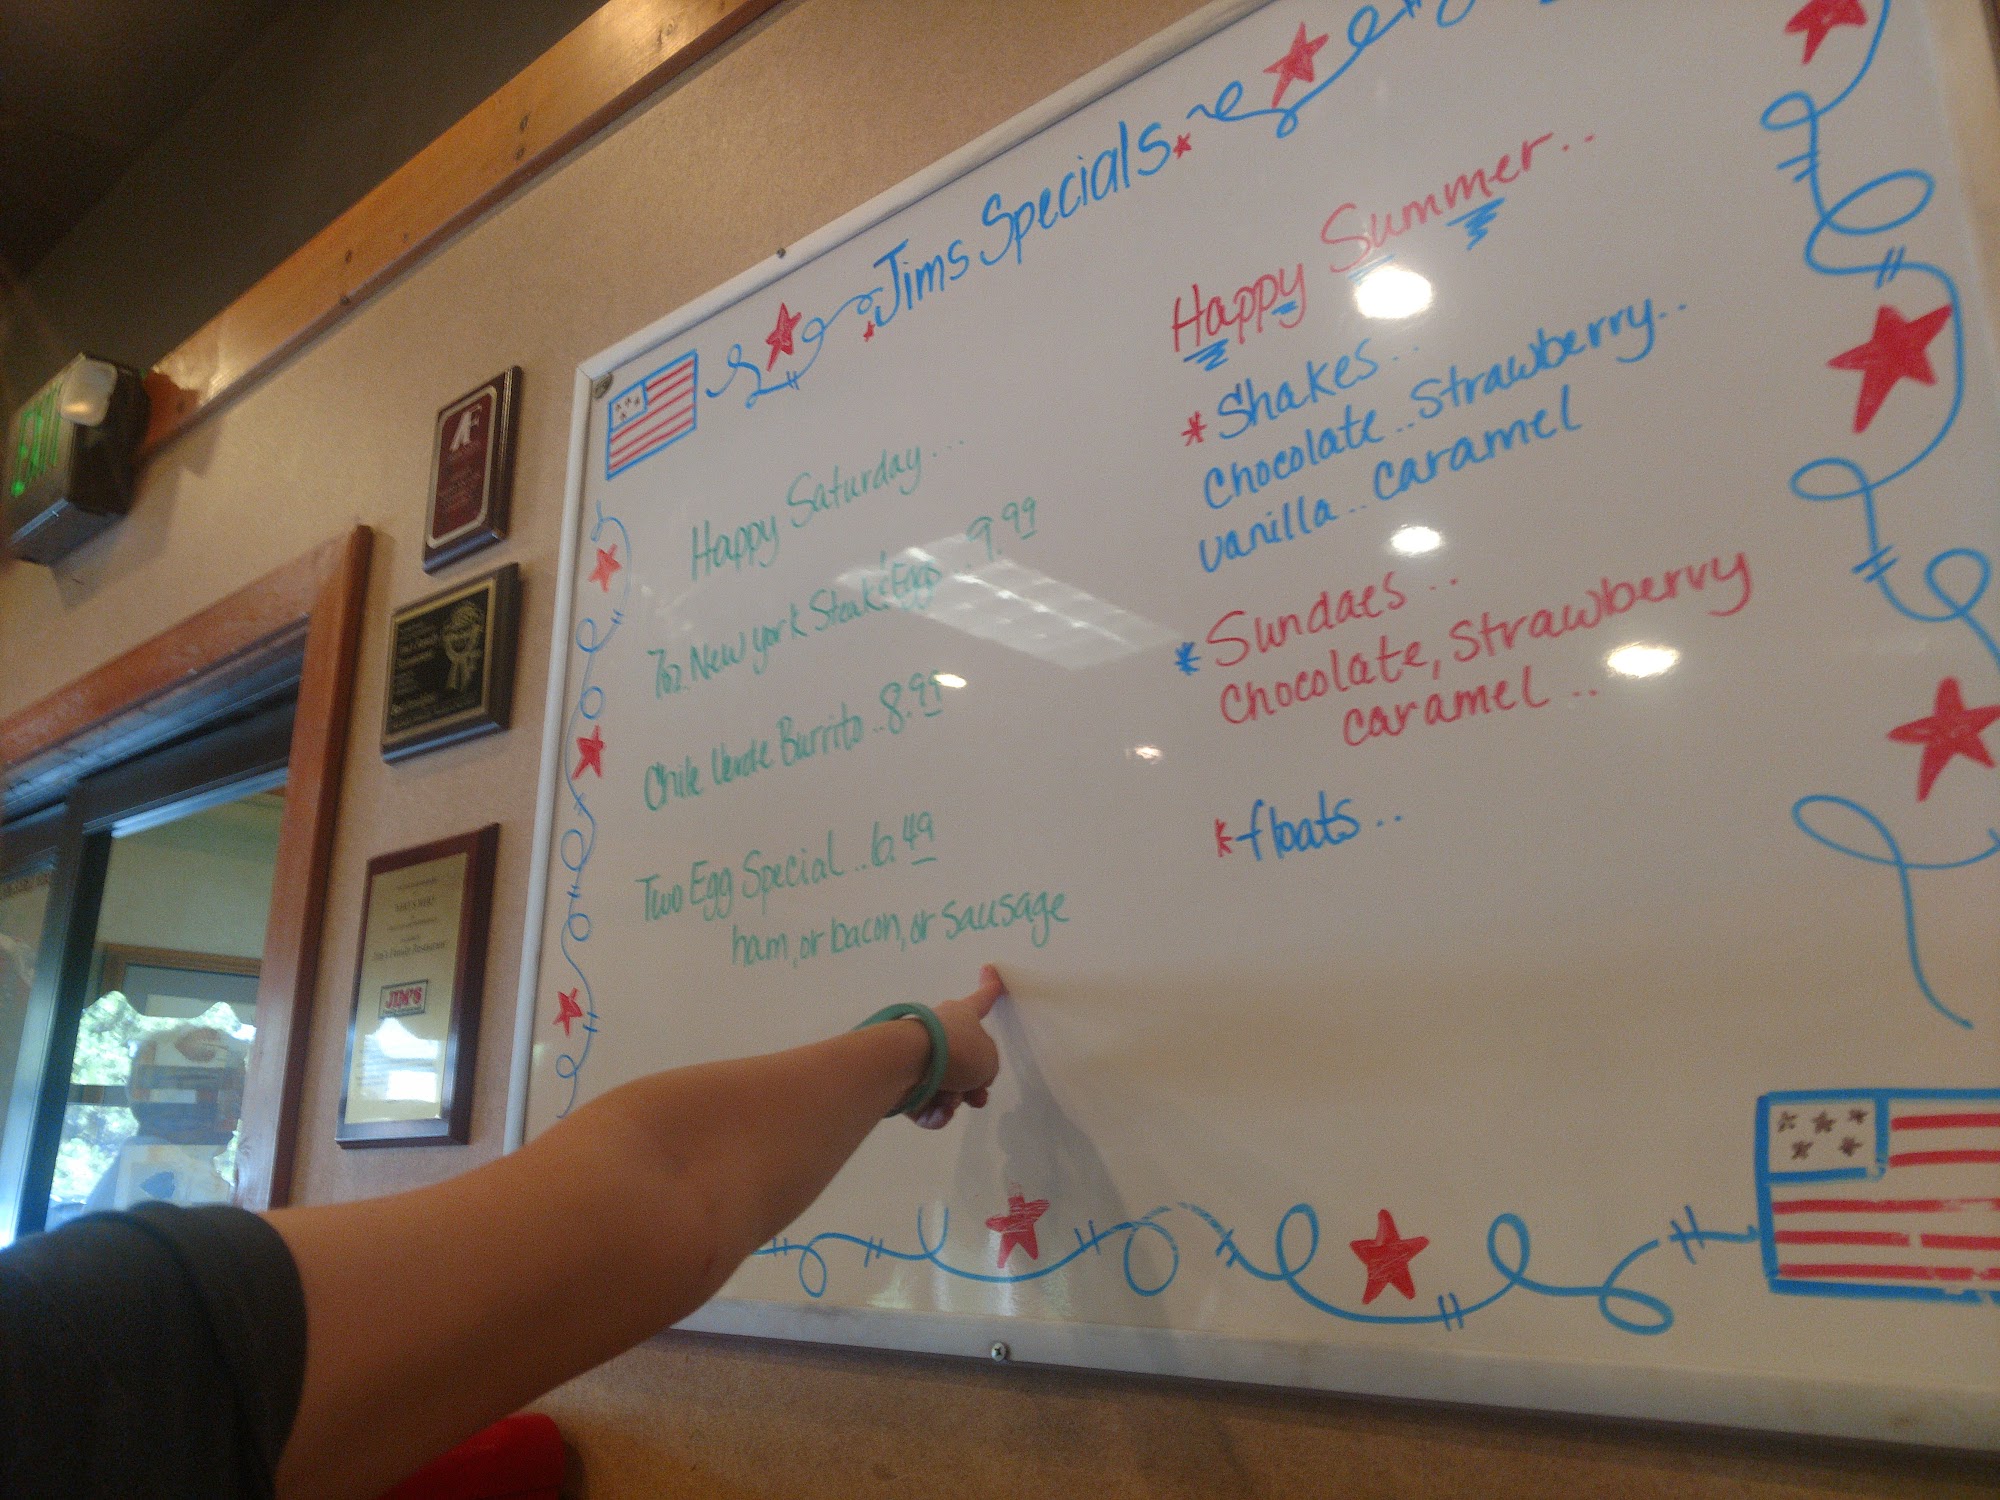 Jims Specials
Happy Saturday....
7oz. New york Steak & Eggs...9.99
Chile Verde Burrito..8.99
Two Egg Special...6.49
ham, or bacon, or sausage
Happy Summer..
*Shakes..
Chocolate..Strawberry..
vanilla..caramel
*Sundaes..
Chocolate, Strawberry
caramel..
*floats..
EXIT
JIM'S